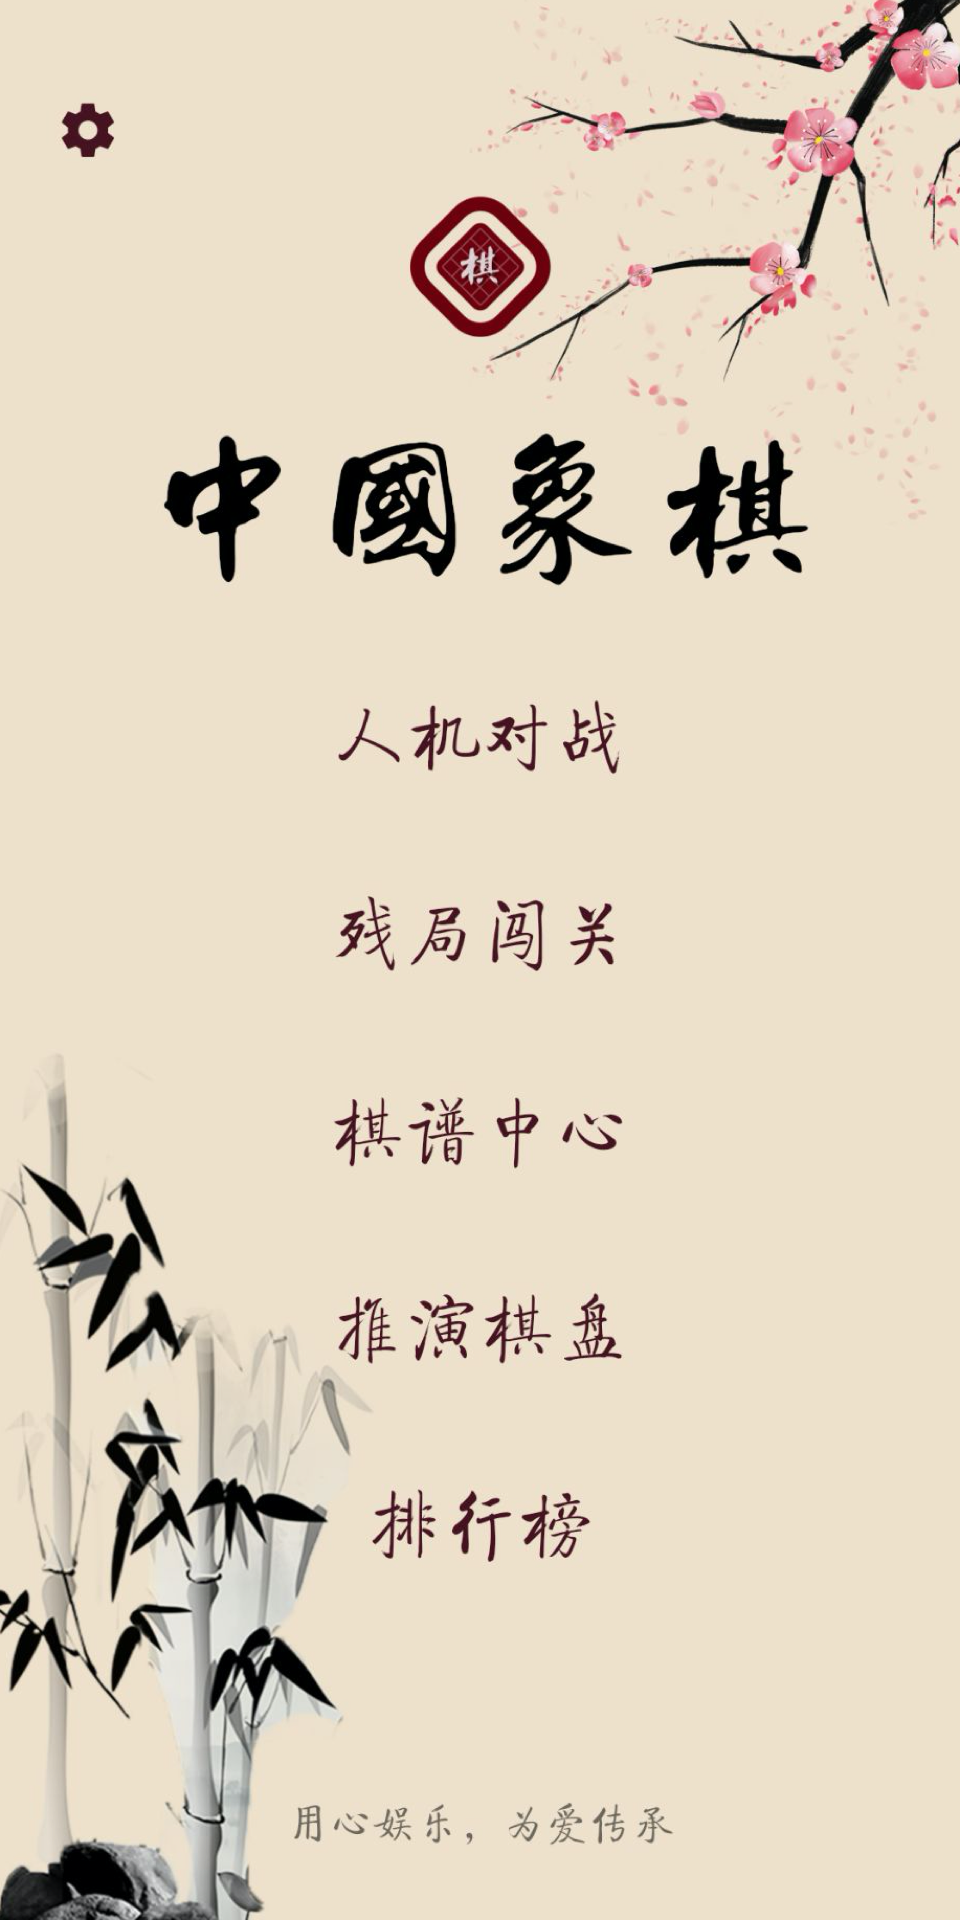 棋
中國象棋
人机对战
残局闯关
棋谱中心
推演棋盘
排行榜
用心娱乐，为爱传承